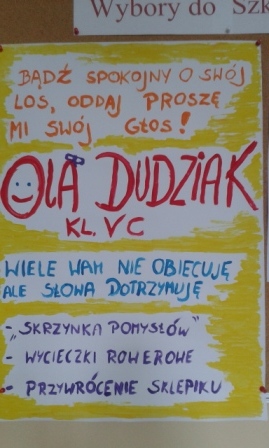 Wybory do Szk
BĄDŹ SPOKOJNY O SWÓJ
LOS, ODDAJ PROSZĘ
MI SWÓJ GŁOS!
OLA DUDZIAK
KL. VC
WIELE WAM NIE OBIECUJĘ
ALE SŁOWA DOTRZYMUJĘ
- „SKRZYNKA POMYSŁÓW"
- WYCIECZKI ROWEROWE
- PRZYWRÓCENIE SKLEPIKU